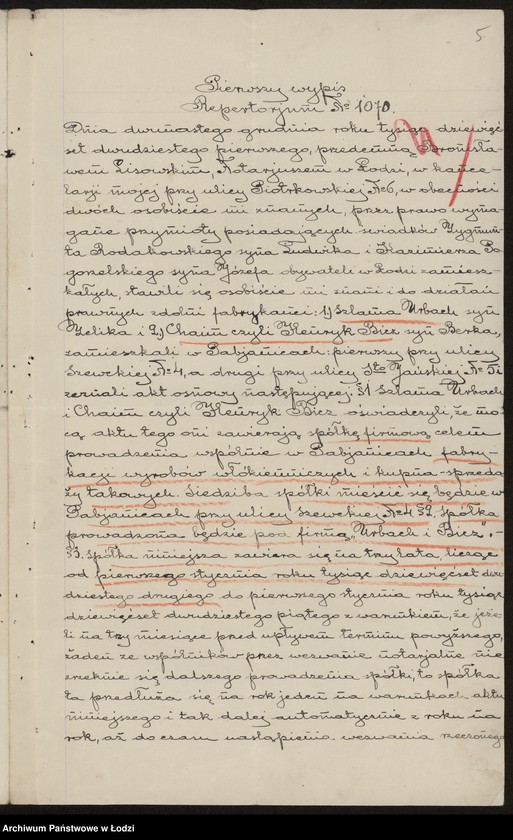 5.
Pierwszy wypis
Repertorjum № 1070.
Dnia dwunastego grudnia roku tysiąc dziewięć-
set dwudziestego pierwszego, przedemną Bronisła-
wem Lisowskim, Notarjuszem w Łodzi, w kance-
larji mojej przy ulicy Piotrkowskiej №6, w obecności
dwóch osobiście mi znanych, przez prawo wyma-
gane przymioty posiadających świadków Zygmun-
ta Rodakowskiego syna Ludwika i Kazimierza
gorzelskiego syna Józefa obywateli w Łodzi zamiesz-
kałych, stawili się osobiście mi znani i do działań
prawnych zdolni fabrykanci: 1) Szlama Urbach syn
i 2) Chaim czyli Henryk Bicz syn Berka,
zamieszkali w Pabjanicach: pierwszy przy ulicy
Szewckiej №4, a drugi przy ulicy Ś-to Jańskiej №
zeznali akt osnowy następującej: §1 Szlama Urbach
i Chaim czyli Henryk Bicz oświadczyli, że mo-
cą aktu tego oni zawierają spółkę firmową celem
prowadzenia wspólnie w Pabjanicach fabry-
kacji wyrobów włókienniczych i kupna-sprzeda-
ży takowych. Siedziba spółki mieścić się będzie w
Pabjanicach przy ulicy Szewckiej №4 §2. Spółka
prowadzona będzie pod firmą „Urbach i Bicz”.-
§3. Spółka niniejsza zawiera się na trzy lata, licząc
od pierwszego stycznia roku tysiąc dziewięćset dwu-
dziestego drugiego do pierwszego stycznia roku tysiąc
dziewięćset dwudziestego piątego z warunkiem, że jeże-
li na trzy miesiące przed upływem terminu powyższego,
żaden ze wspólników przez wezwanie notarjalne nie
zrzeknie się dalszego prowadzenia spółki, to spółka
ta przedłuża się na rok jeden na warunkach aktu
niniejszego i tak dalej automatycznie z roku na
rok, aż do czasu nastąpienia wezwania rzeczonego
Archiwum Państwowe w Łodzi